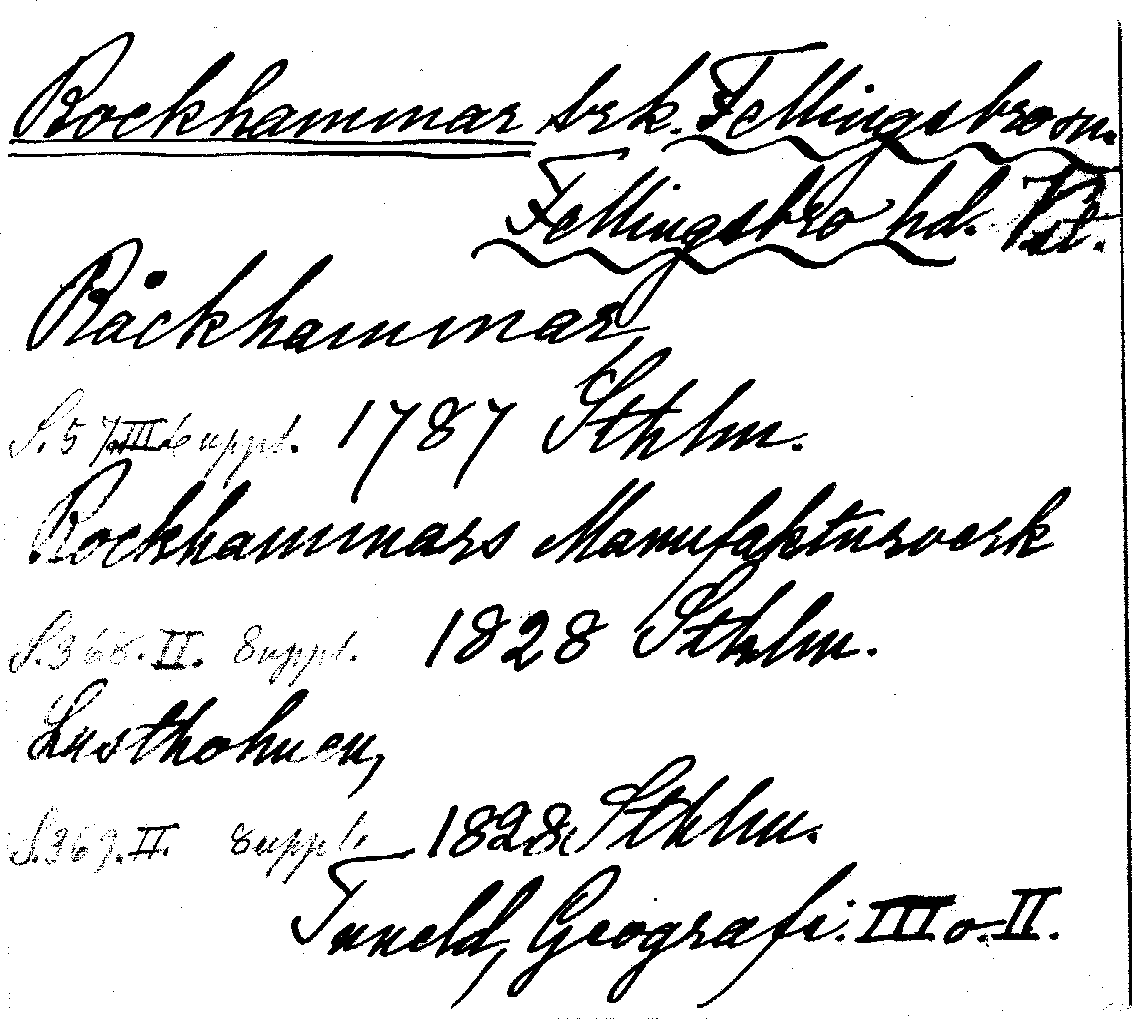 Rockhammar brk. Fellingsbro sn.
Fellingsbro hd. Vstl.
Råckhammar
S. 57. III uppl. 1787 Sthlm.
Rockhammars Manufakturverk
S. 368. II. 8 uppl. 1828 Sthlm.
Lustholmen,
S. 369. II. 8 uppl. 1828. Sthlm.
Tuneld, Geografi. III o. II.